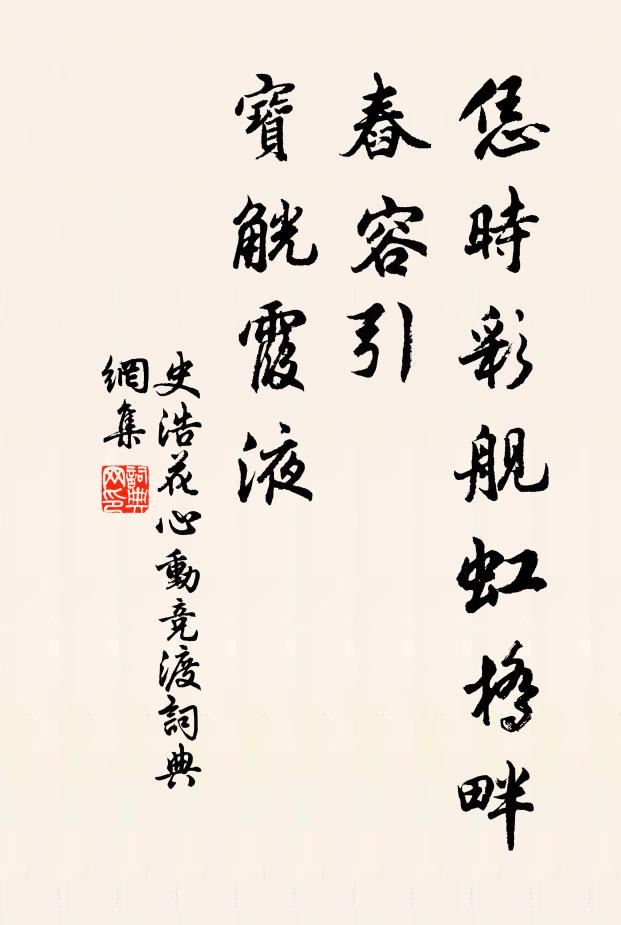 恁時彩舰虹橋畔
舂容引
寶觥霞液
史浩花心動竞渡詞典
網集
詞典网印